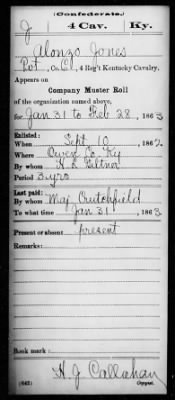 (Confederate.)
J 4 Cav. Ky.
Alonzo Jones
Pvt., Co. C, 4 Reg't Kentucky Cavalry.
Appears on
Company Muster Roll
of the organization named above,
for Jan 31 to Feb 28, 1863
Enlisted:
When Sept 10, 1862
Where Owen Co. Ky
By whom H. L. Giltner
Period 3 yrs
Last paid:
By whom Maj. Crutchfield
To what time Jan 31, 1863
Present or absent present
Remarks:
Book mark:
H. J. Callahan
(642) Copyist.